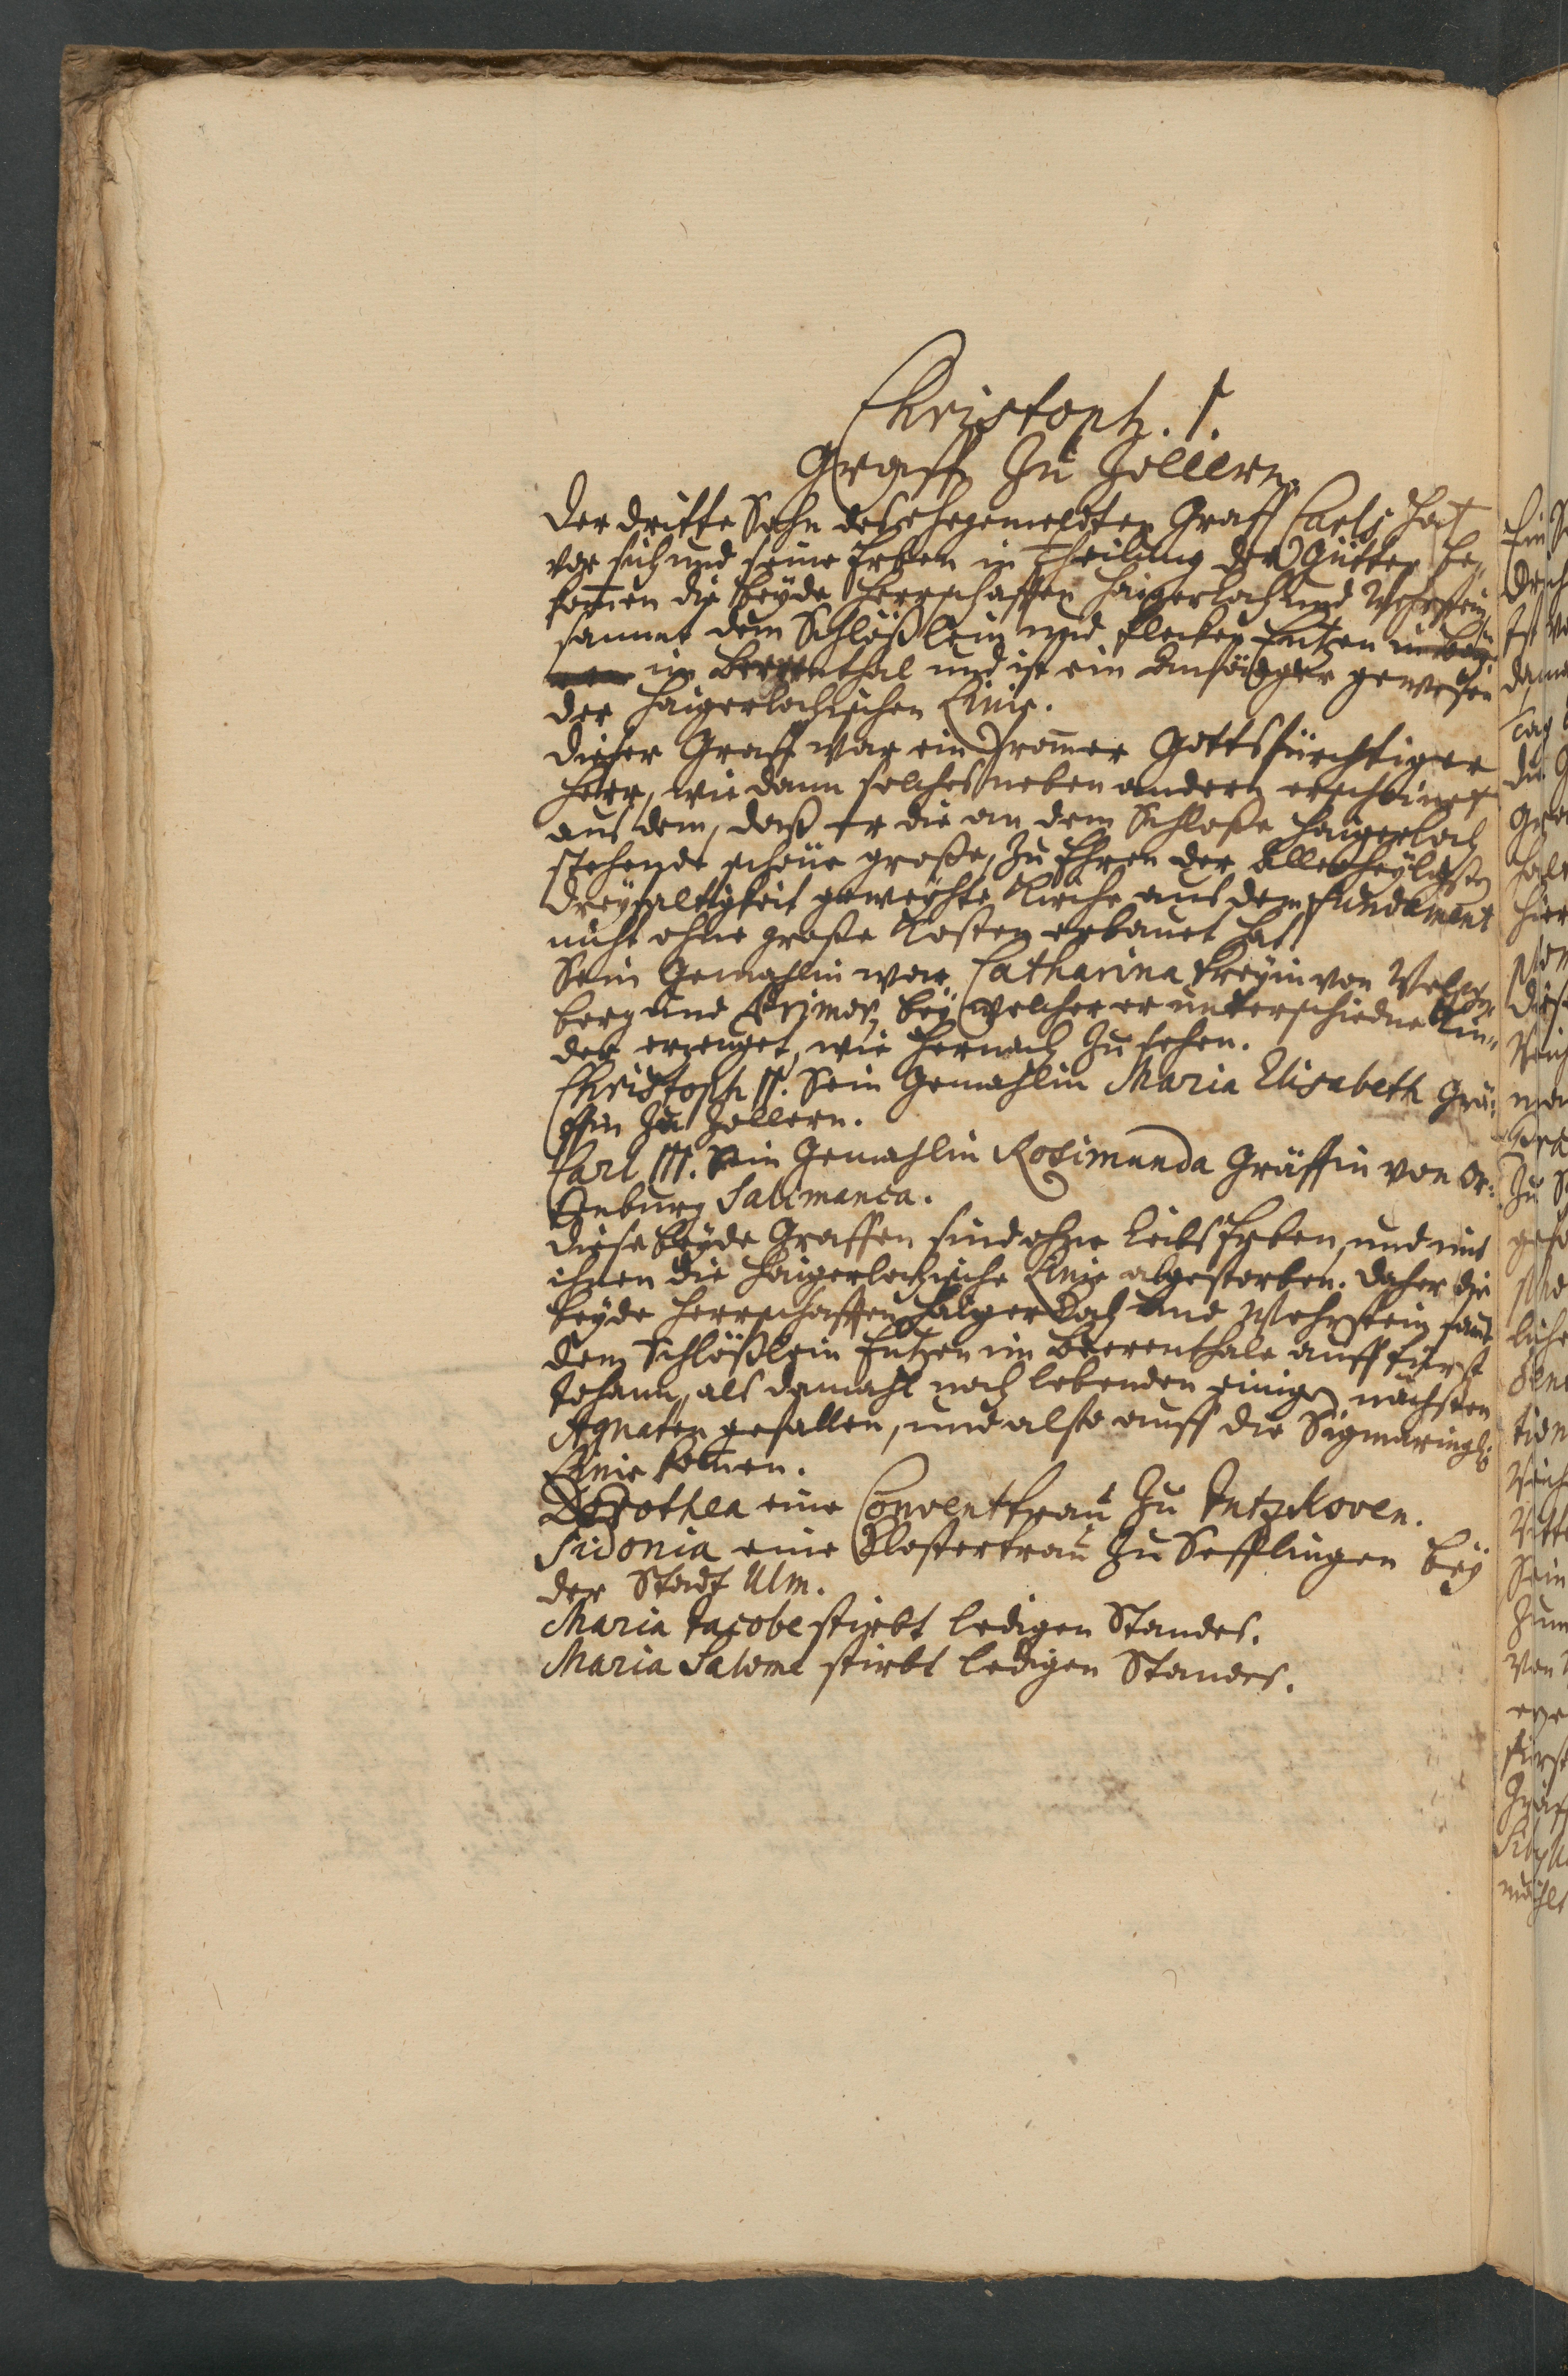 Christoph. I.
Graff Zu Zollern.
Der dritte Sohn des ehegemeldten Graff Carls hat
vor sich und seine Erben in Theilung der Gütter be-
kom̄en die beyde Herrschafften Haigerloch und Wehrstein
sammt dem Schlößlein und Flecken Entzen
im Beerenthal und ist ein Anfänger gewesen
der Haigerlochischen Linie.
Dieser Graff war ein From̄er Gottsfürchtiger
Herr, wie dann solches neben andern erscheinet
aus dem, daß er die an dem Schloße Haigerloch
stehende schöne große, Zu Ehren der Allerheyligsten
Dreyfaltigkeit geweyhte Kirche aus dem Fundament
nicht ohne große Kosten erbauet hat.
Sein Gemahlin war Catharina Freyin von Welsp-
berg und Primör, bey welcher er unterschiedne Kin-
der erzeuget, wie hernach Zu sehen.
Christoph II. Sein Gemahlin Maria Elisabeth Grä-
ffin Zu Zollern.
Carl III. Sein Gemahlin Rosimunda Gräffin von Or-
tenburg Salimanca.
Diese beyde Graffen sind ohne Leibs Erben, und mit
ihnen die Haigerlochische Linie abgestorben. Daher die
beyde Herrschafften Haigerloch und Wehrstein samt
dem Schlößlein Entzen im Beerenthale auff Fürst
Johann, als damahl noch lebenden einigen nächsten
Agnaten gefallen, und also auff die Sigmaringl:
Linie kom̄en.
Dorothea eine Conventfrau Zu Intzkoven.
Sidonia eine Klosterfrau Zu Sefflingen bey
der Stadt Ulm.
Maria Jacobe stirbt ledigen Standes.
Maria Salome stirbt ledigen Standes.